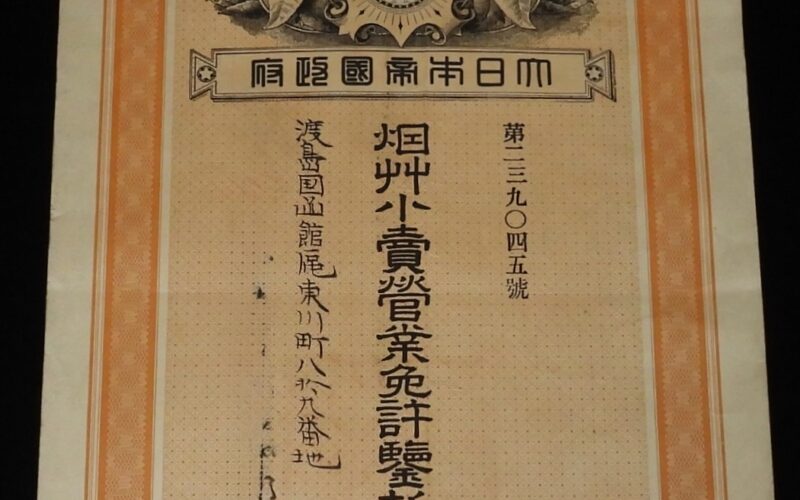 大日本帝國政府
第二三九〇四五號
烟艸小賣營業免許鑒札
渡島国函館区東川町八拾九番地